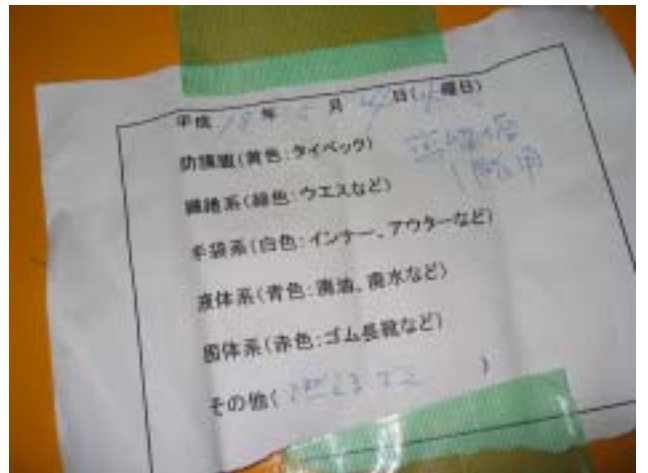 平成 18 年 月 日( 曜日)
防護服(黄色:タイベック)
繊維系(緑色:ウエスなど)
手袋系(白色:インナー、アウターなど)
液体系(青色:廃油、廃水など)
固体系(赤色:ゴム長靴など)
その他( )